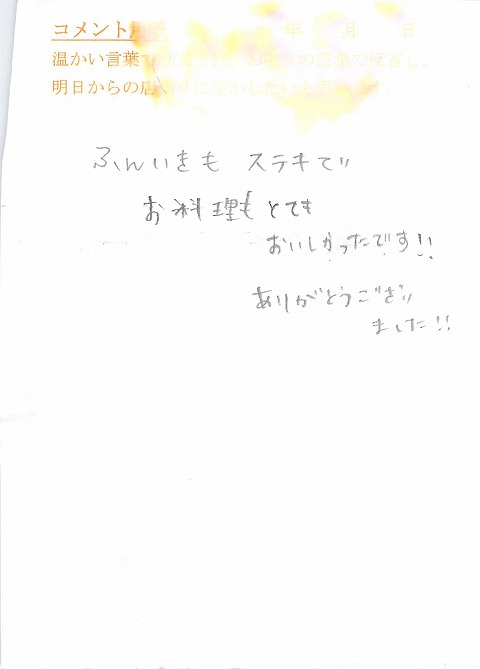 コメント用紙 年 月 日
温かい言葉で の言葉で反省し、
明日からの店 に生かしたいと思います。
ふんいきも ステキで
お料理も とても
おいしかったです!!
ありがとうござい
ました!!